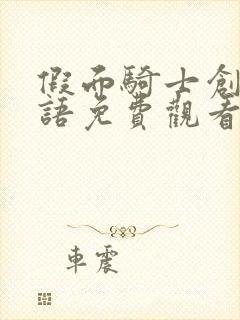 假面騎士創
語免費觀看
車震